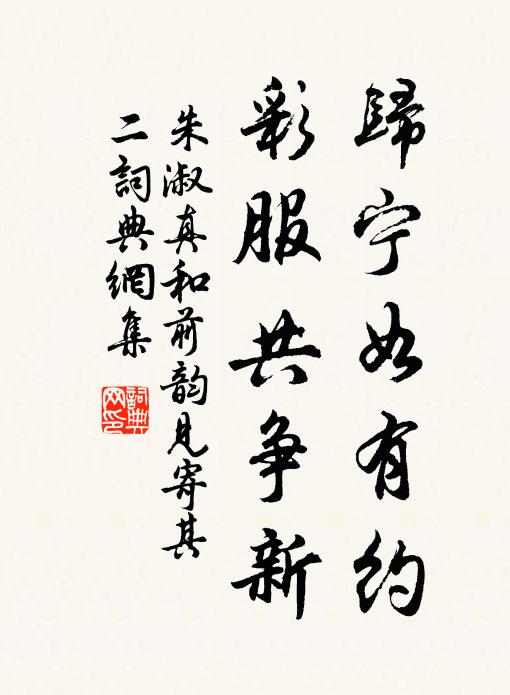 歸宁如有约
彩服共争新
朱淑真和前韵見寄其
二詞典網集
詞典网印